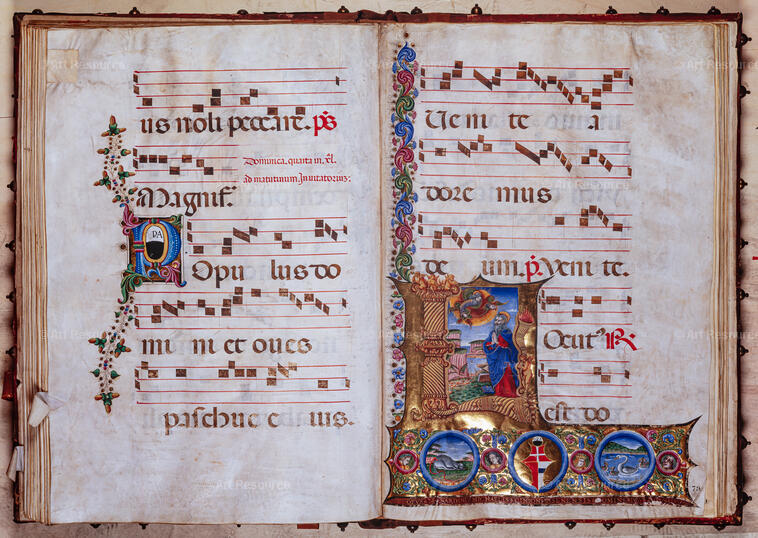 us noli peccare. p̄s
Dominica. quarta in. xl.
ad matutinum. Inuitatorium:
Magnif.
PA
Opu lus do
mi ni et oues
paschue e ius.
Ue ni te a
dore mus
de um. p̄. Veni te.
Ocut9 R
est do
© Art Resource